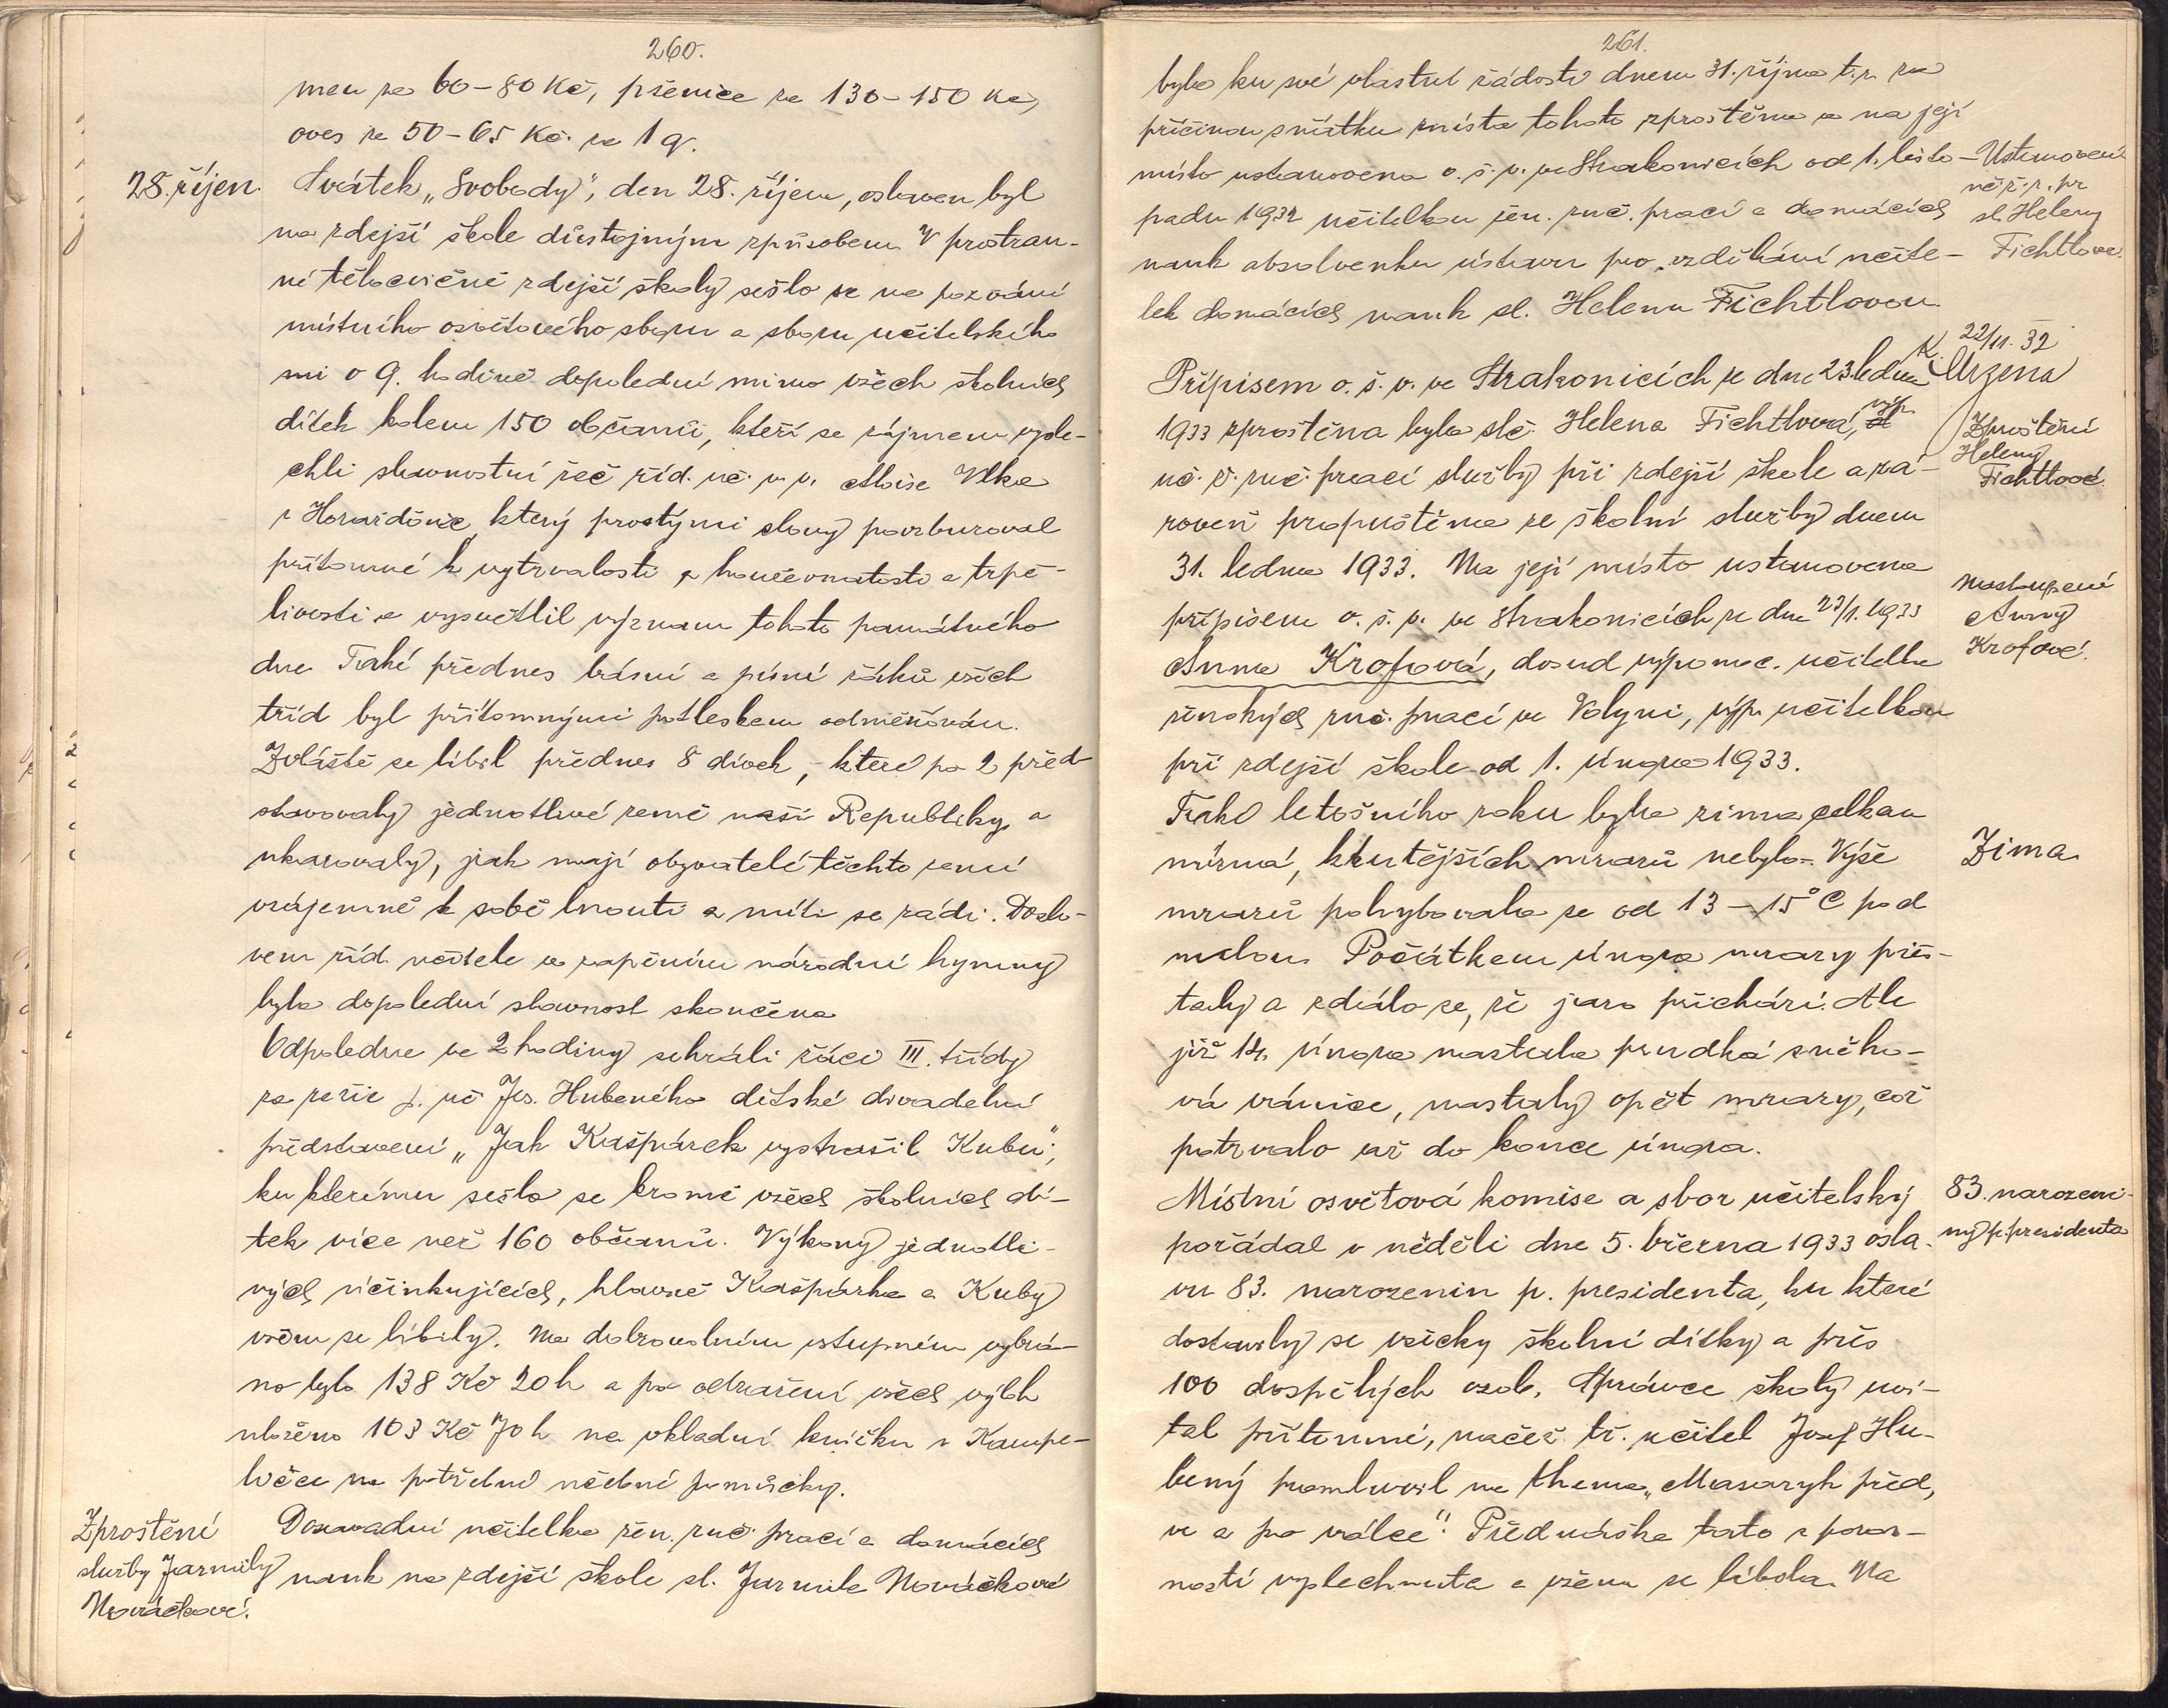 260.
men za 60-80 Kč, pšenice za 130-150 Kč,
oves za 50-65 Kč. za 1 q.
28. říjen.
Svátek „Svobody", den 28. říjen, oslaven byl
na zdejší škole důstojným způsobem. V prostran-
né tělocvičně zdejší školy sešlo se na pozvání
místního osvětového sboru a sboru učitelského
o 9. hodině dopolední mimo všech školních
dítek kolem 150 občanů, kteří se zájmem vysle-
chli slavnostní řeč říd. uč. v. v. Aloise Vlka
z Horažďovic, který prostými slovy povzbuzoval
přítomné k vytrvalosti, houževnatosti a trpě-
livosti a vysvětlil význam tohoto památného
dne. Také přednes básní a písní žáků všech
tříd byl přítomnými potleskem odměňován.
Zvláště se líbil přednes 8 dívek, - které po 2 před-
stavovaly jednotlivé země naší Republiky a
ukazovaly, jak mají obyvatelé těchto zemí
vzájemně k sobě lnouti a míti se rádi. Doslo-
vem říd. učitele a zapěním národní hymny
byla dopolední slavnost skončena.
Odpoledne ve 2 hodiny sehráli žáci III. třídy
za režie p. uč Jos. Hubeného dětské divadelní
představení „Jak Kašpárek vystrašil Kubu";
ku kterému sešlo se kromě všech školních dí-
tek více než 160 občanů. Výkony jednotli-
vých účinkujících, hlavně Kašpárka a Kuby
všem se líbily. Na dobrovolném vstupném vybrá-
no bylo 138 Kč 20 h a po odražení všech výloh
uloženo 103 Kč 70 h na vkladní knížku v Kampe-
ličce na potřebné učební pomůcky.
Zproštění
služby Jarmily
Nováčkové.
Dosavadní učitelka žen. ruč. prací a domácích
nauk na zdejší škole sl. Jarmila Nováčková
261.
byla ku své vlastní žádosti dnem 31. října t. r. za
příčinou sňatku místa tohoto zproštěna a na její
místo ustanovena o. š. v. ve Strakonicích od 1. listo-
padu 1932 učitelkou žen. ruč. prací a domácích
nauk absolventka ústavu pro vzdělání učite-
lek domácích nauk sl. Helena Fichtlovou.
Ustanovení
uč. ž. r. pr
sl. Heleny
Fichtlové.
22/11. 32
Přípisem o. š. v. ve Strakonicích ze dne 23. ledna
1933 zproštěna byla slč. Helena Fichtlová, výp.
uč. ž. ruč. prací služby při zdejší škole a zá-
roveň propuštěna ze školní služby dnem
31. ledna 1933. Na její místo ustanovena
přípisem o. š. v. ve Strakonicích ze dne 23/1. 1933
Anna Krofová, dosud výpomoc. učitelka
ženských ruč. prací ve Volyni, výp. učitelkou
při zdejší škole od 1. února 1933.
Zproštění
Heleny
Fichtlové.
Nastoupení
Anny
Krofové.
Také letošního roku byla zima celkem
mírná, krutějších mrazů nebylo. Výše
mrazů pohybovala se od 13-15° C pod
nulou. Počátkem února mrazy přes-
taly a zdálo se, že jaro přichází. Ale
již 14. února nastala prudká sněho-
vá vánice, nastaly opět mrazy, což
potrvalo až do konce února.
Zima
Místní osvětová komise a sbor učitelský
pořádal v neděli dne 5. března 1933 osla-
vu 83. narozenin p. presidenta, ku které
dostavily se všecky školní dítky a přes
100 dospělých osob. Správce školy uví-
tal přítomné, načež tř. učitel Josef Hu-
bený promluvil na thema „Masaryk před,
ve a po válce". Přednáška tato s pozor-
ností vyslechnuta a všem se líbila. Na
83. narozeni-
ny p. presidenta